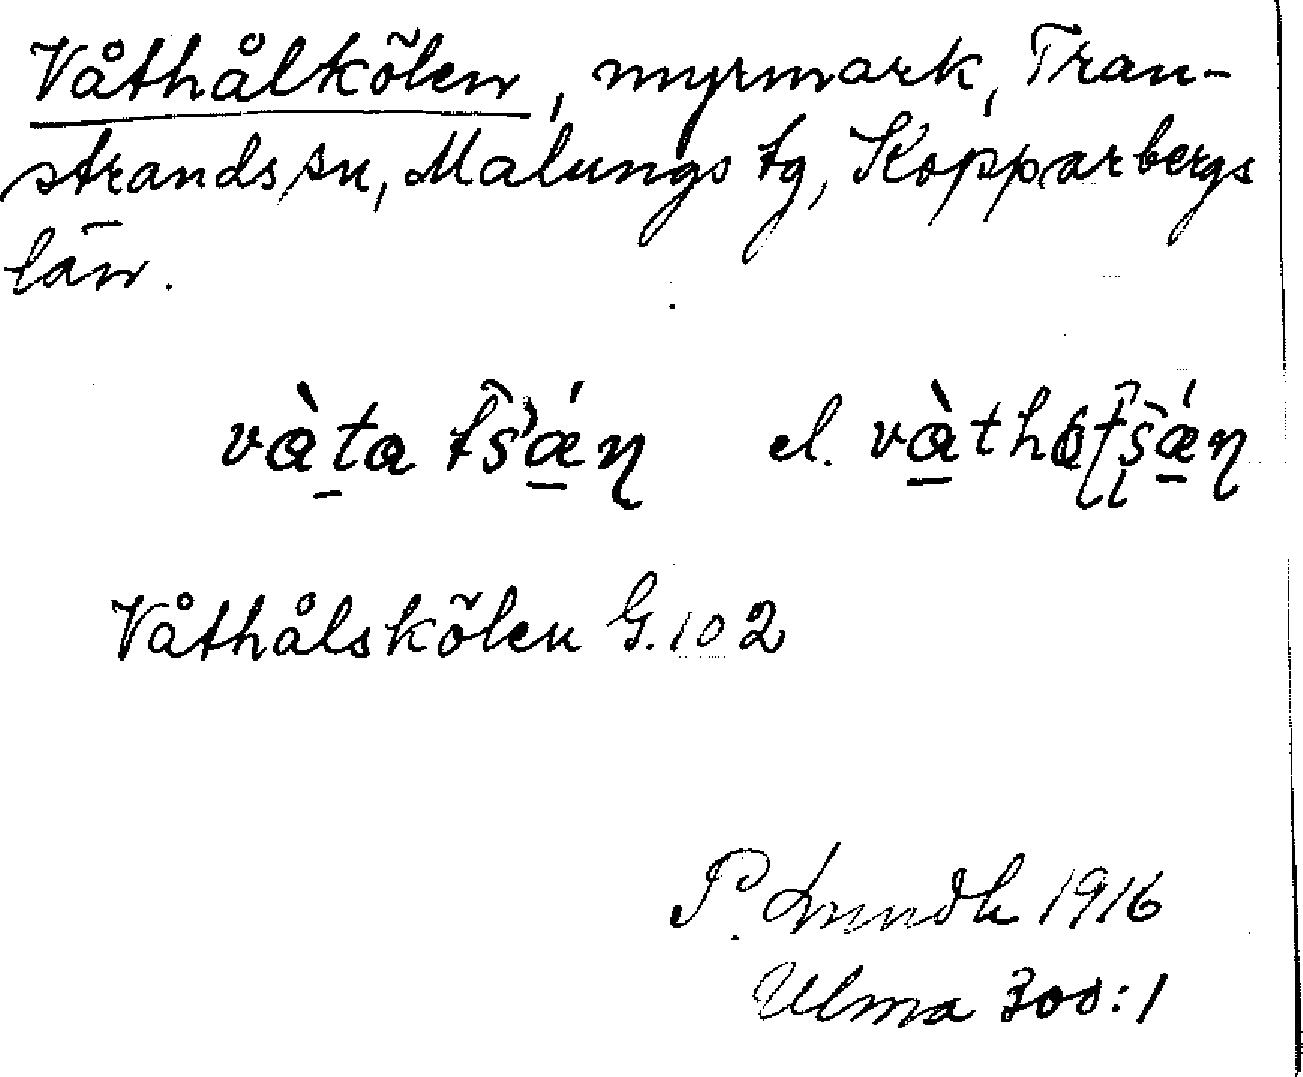 Våthålkölen, myrmark, Tran-
strands sn, Malungs tg, Kopparbergs
län.
và̠ta tš'ǽ̠ɳ el. và̠thɷtšǽ̠ɳ
Våthålskölen G. 102
P. Lundh 1916
Ulma 300:1